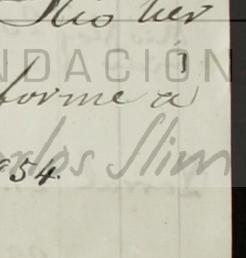 her
NDACIÓN
forme a
rlos Slim
54.